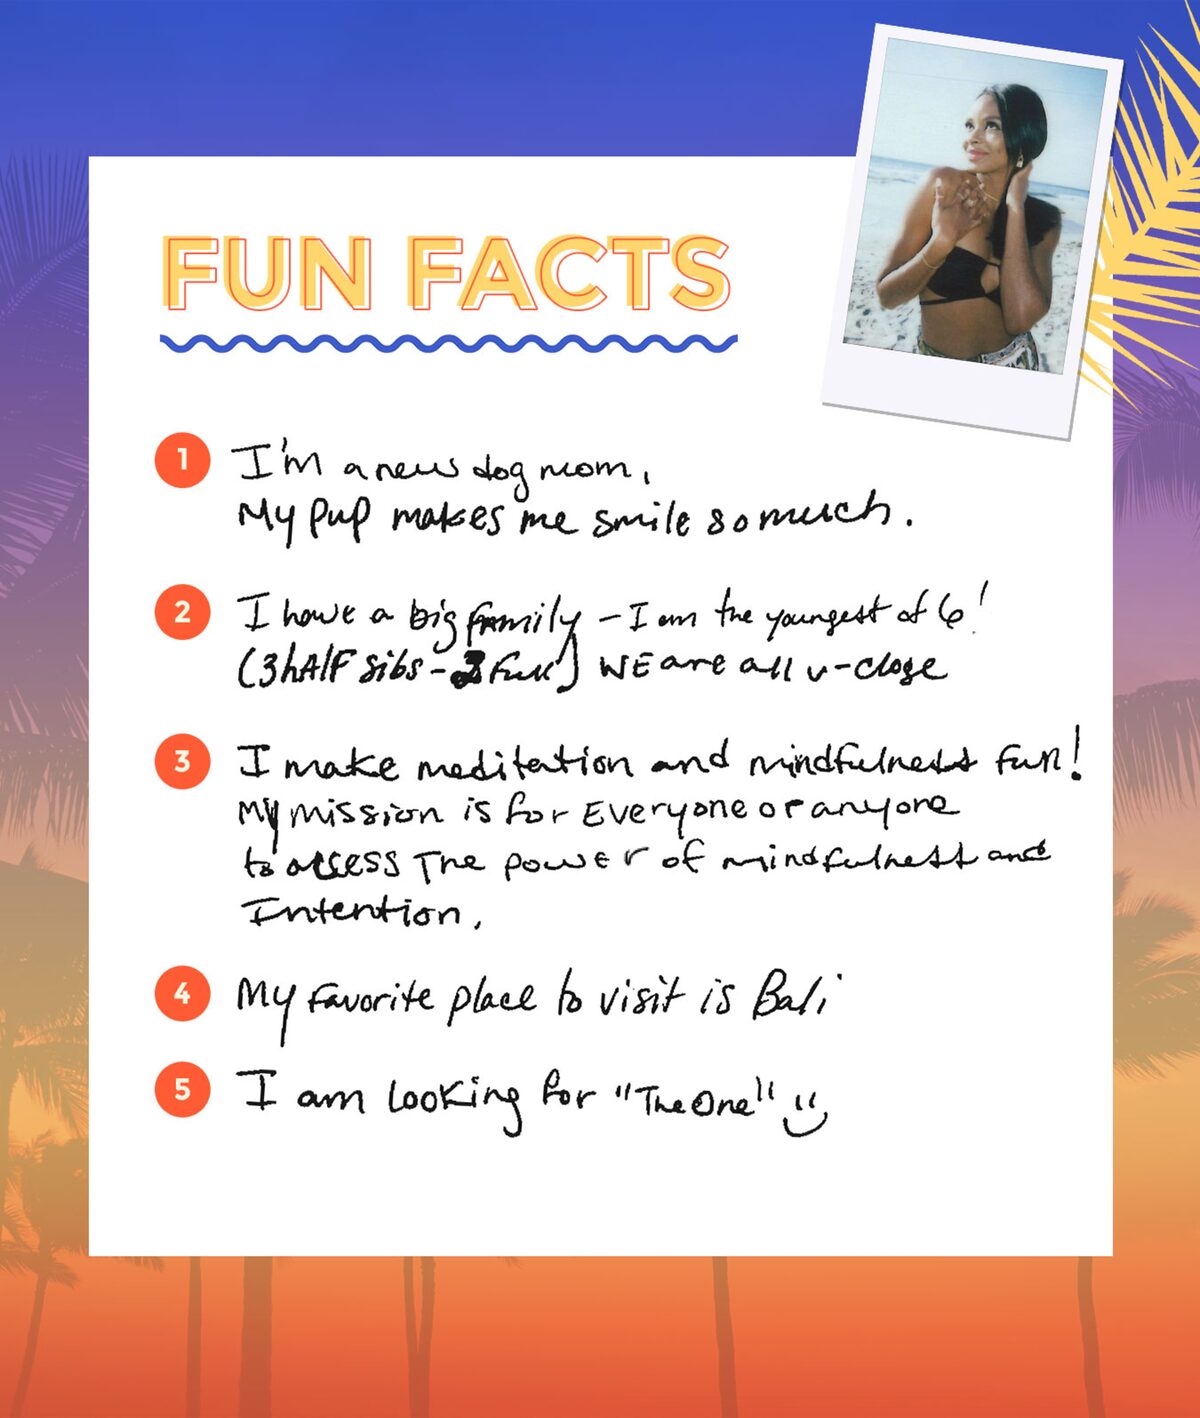 FUN FACTS
1 I'm a new dog mom.
My pup makes me smile so much.
2 I have a big family - I am the youngest of 6!
(3 hAlF sibs - 2 full) WE are all v-close
3 I make meditation and mindfulness fun!
My mission is for Everyone or anyone
to access The power of mindfulness and
Intention.
4 My favorite place to visit is Bali
5 I am looking for "The One"